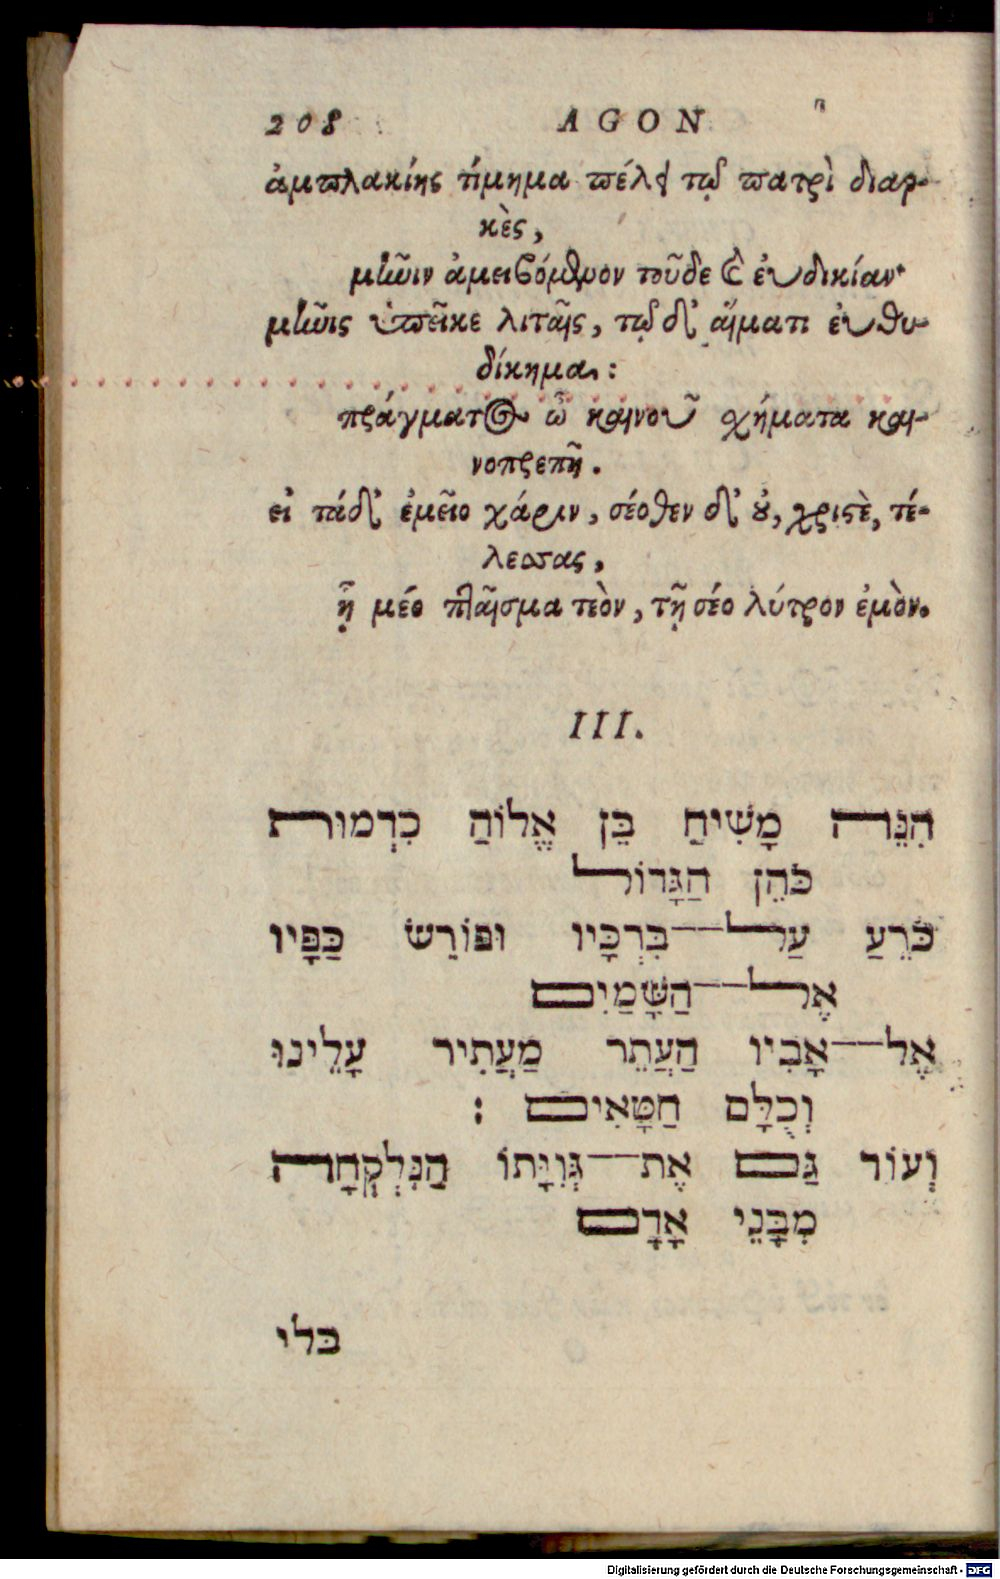 208 AGON
ἀμπλακίης τίμημα πέλει τῷ πατρὶ διαρ-
κὲς,
μῆνιν ἀμειβόμενον τοῦδε καὶ εὐδικίαν·
μῆνις ὑπεῖκε λιταῖς, τῷ δ' αἵματι εὐθυ-
δίκημα:
πράγματος ὦ καινοῦ σχήματα και-
νοπρεπῆ.
εἰ τάδ' ἐμεῖο χάριν, σέοθεν δ' οὐ, χριστὲ, τέ-
λεσσας,
ᾗ μέο πταῖσμα τεὸν, τῇ σέο λύτρον ἐμόν.
III.
הִנֵּה מָשִׁיחַ בֵּן אֱלוֹהַ כִּדְמוּת
כֹּהֵן הַגָּדוֹל
כֹּרֵעַ עַל־בִּרְכָּיו וּפוֹרֵשׂ כַּפָּיו
אֶל־הַשָּׁמַיִם
אֶל־אָבִיו הַעְתֵּר מַעֲתִּיר עָלֵינוּ
וְכֻלָּם חַטָּאִים :
וְעוֹד גַּם אֶת־גְּוִיָּתוֹ הַנִּלְקְחָה
מִבְּנֵי אָדָם
בלי
Digitalisierung gefördert durch die Deutsche Forschungsgemeinschaft - DFG